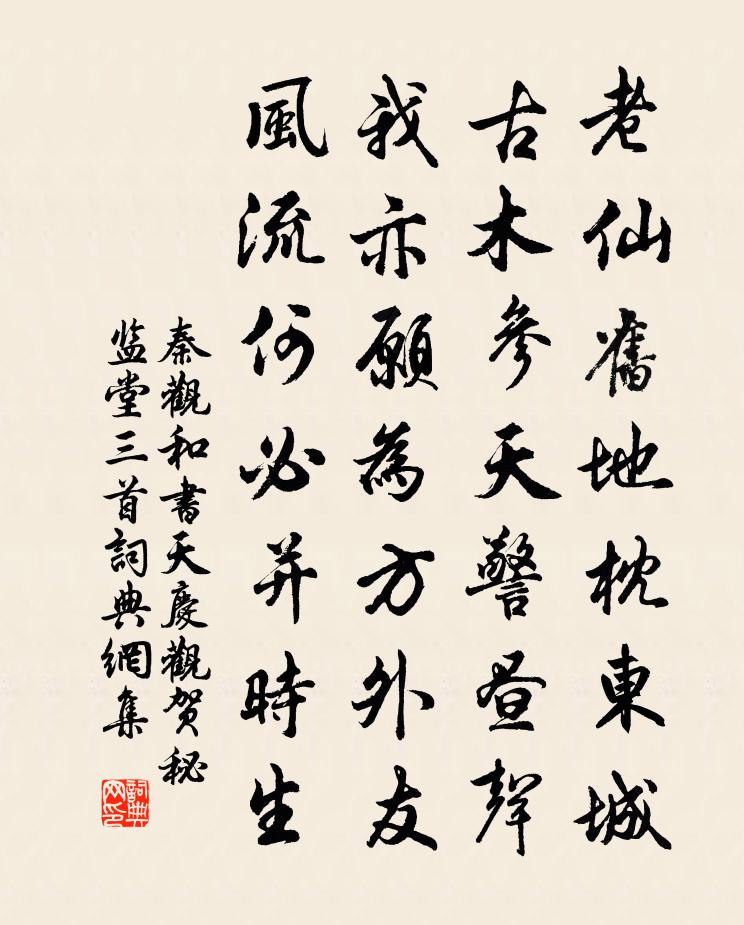 老仙舊地枕東城
古木參天警晝聲
我亦願為方外友
風流何必并時生
秦觀和書天慶觀賀秘
监堂三首詞典網集
詞典
网印